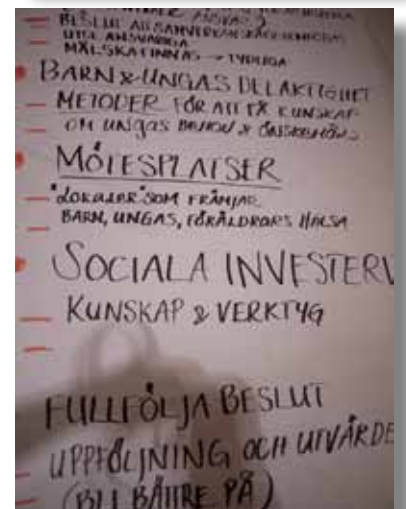 BESLUT
MÅL SKA FINNAS → TYDLIGA
BARN & UNGAS DELAKTIGHET
METODER FÖR ATT FÅ KUNSKAP
OM UNGAS BEHOV & ÖNSKEMÅL
MÖTESPLATSER
"LOKALER" SOM FRÄMJAR
BARN, UNGAS, FÖRÄLDRARS HÄLSA
SOCIALA INVESTER
KUNSKAP & VERKTYG
FULLFÖLJA BESLUT
UPPFÖLJNING OCH UTVÄRDE
(BLI BÄTTRE PÅ)